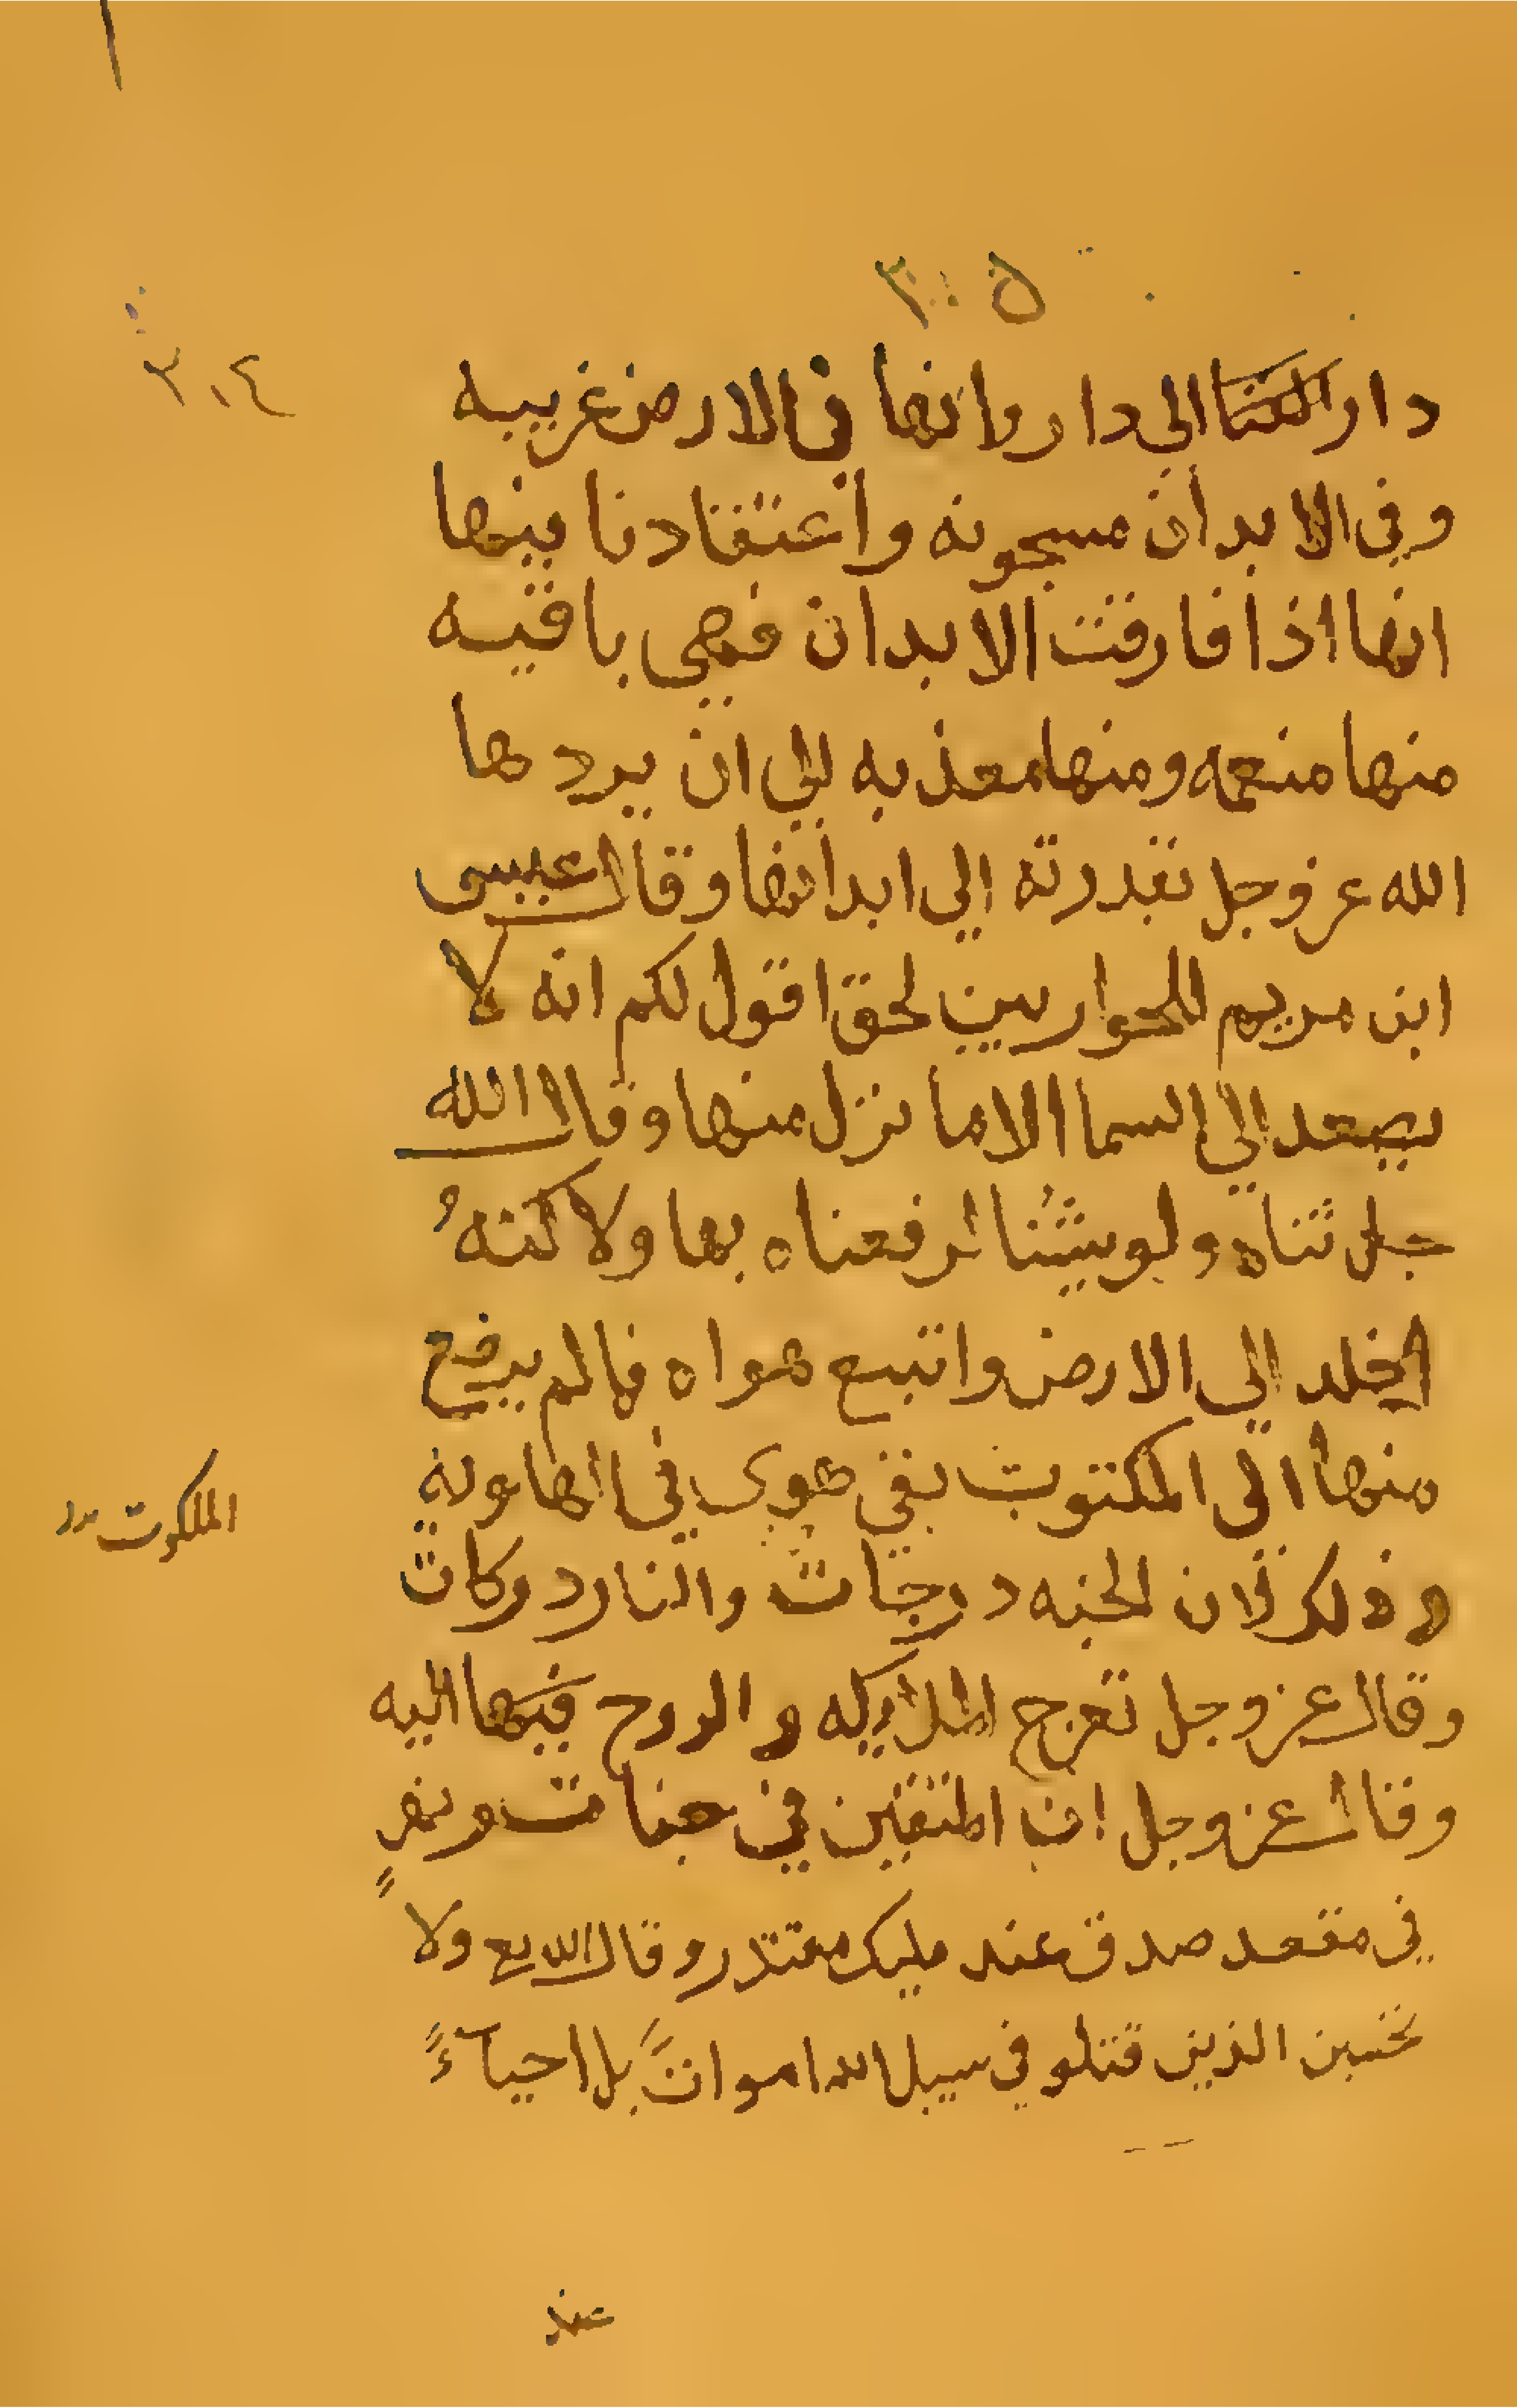 ٣٠٥
٣٠٤
دار الفنا الى دار وانها فى الارض غريبه
وفي الابدان مسجونه واعتقادنا بيها
انها اذا فارقت الابدان فهي باقيه
منها منعمه ومنها معذبه الي ان يردها
الله عز وجل بقدرته الي ابدانها وقال عيسى
ابن مريم للحواريين لحق اقول لكم انه لا
يصعد الي السما الا ما نزل منها وقال الله
جل ثناه ولو شئنا لرفعناه بها ولاكنهُ
اخلد الي الارض واتبع هواه فالم يرفع
منها الى المكتوت بقي هوى في الهاوية
وذلك لان الجنه درجات والنار دركات
وقال عز وجل تعرج الملايكه والروح فيها اليه
وقال عز وجل ان المتقين في جنات ونهرٍ
في مقعد صدق عند مليك مقتدر وقال الله تع ولا
تحسبن الذين قتلو في سبيل الله امواتً بل احيآءً
الملكوت
عند